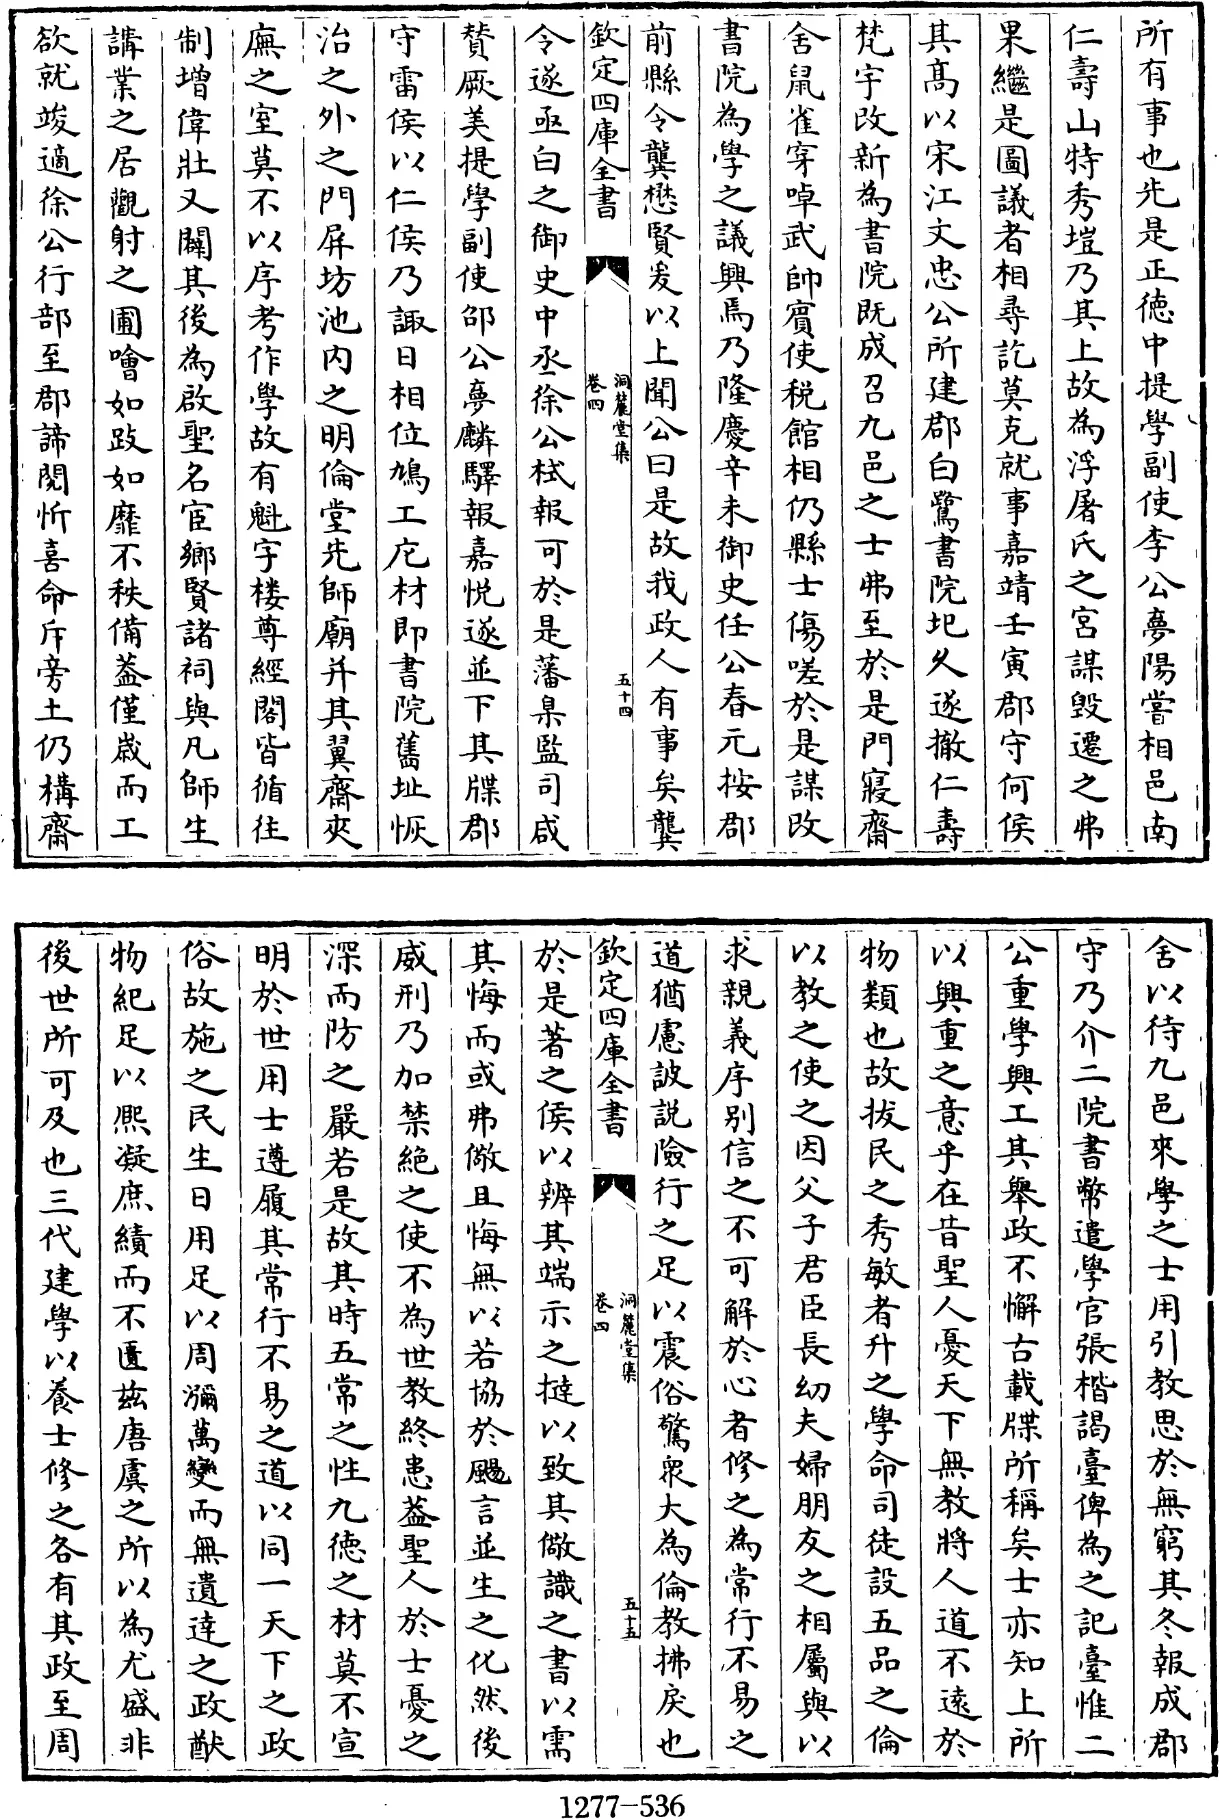 所有事也先是正德中提學副使李公夢陽嘗相邑南
仁壽山特秀塏乃其上故為浮屠氏之宮謀毀遷之弗
果繼是圖議者相尋訖莫克就事嘉靖壬寅郡守何侯
其高以宋江文忠公所建郡白鷺書院圯久遂撤仁壽
梵宇改新為書院既成召九邑之士弗至於是門寢齋
舍鼠雀穿啅武帥賓使税館相仍縣士傷嗟於是謀改
書院為學之議興焉乃隆慶辛未御史任公春元按郡
前縣令龔懋賢爰以上聞公曰是故我政人有事矣龔
欽定四庫全書
洞麓堂集
卷四
五十四
令遂亟白之御史中丞徐公栻報可於是藩臬監司咸
賛厥美提學副使邵公夢麟驛報嘉悦遂並下其牒郡
守雷侯以仁侯乃諏日相位鳩工庀材即書院舊址恢
治之外之門屏坊池内之明倫堂先師廟并其翼齋夾
廡之室莫不以序考作學故有魁字楼尊經閣皆循往
制增偉壯又闢其後為啟聖名宦鄉賢諸祠與凡師生
講業之居觀射之圃噲如跂如靡不秩備葢僅歲而工
欲就竣適徐公行部至郡諦閲忻喜命斥旁土仍構齋
舍以待九邑來學之士用引教思於無窮其冬報成郡
守乃介二院書幣遣學官張楷謁臺俾為之記臺惟二
公重學興工其舉政不懈古載牒所稱矣士亦知上所
以興重之意乎在昔聖人憂天下無教將人道不遠於
物類也故拔民之秀敏者升之學命司徒設五品之倫
以教之使之因父子君臣長幼夫婦朋友之相屬與以
求親義序别信之不可解於心者修之為常行不易之
道猶慮詖説險行之足以震俗驚衆大為倫教拂戾也
欽定四庫全書
洞麓堂集
卷四
五十五
於是著之侯以辨其端示之撻以致其儆識之書以需
其悔而或弗儆且悔無以若協於颺言並生之化然後
威刑乃加禁絶之使不為世教終患葢聖人於士憂之
深而防之嚴若是故其時五常之性九德之材莫不宣
明於世用士遵履其常行不易之道以同一天下之政
俗故施之民生日用足以周瀰萬變而無遺達之政猷
物紀足以熙凝庶績而不匱兹唐虞之所以為尤盛非
後世所可及也三代建學以養士修之各有其政至周
1277-536